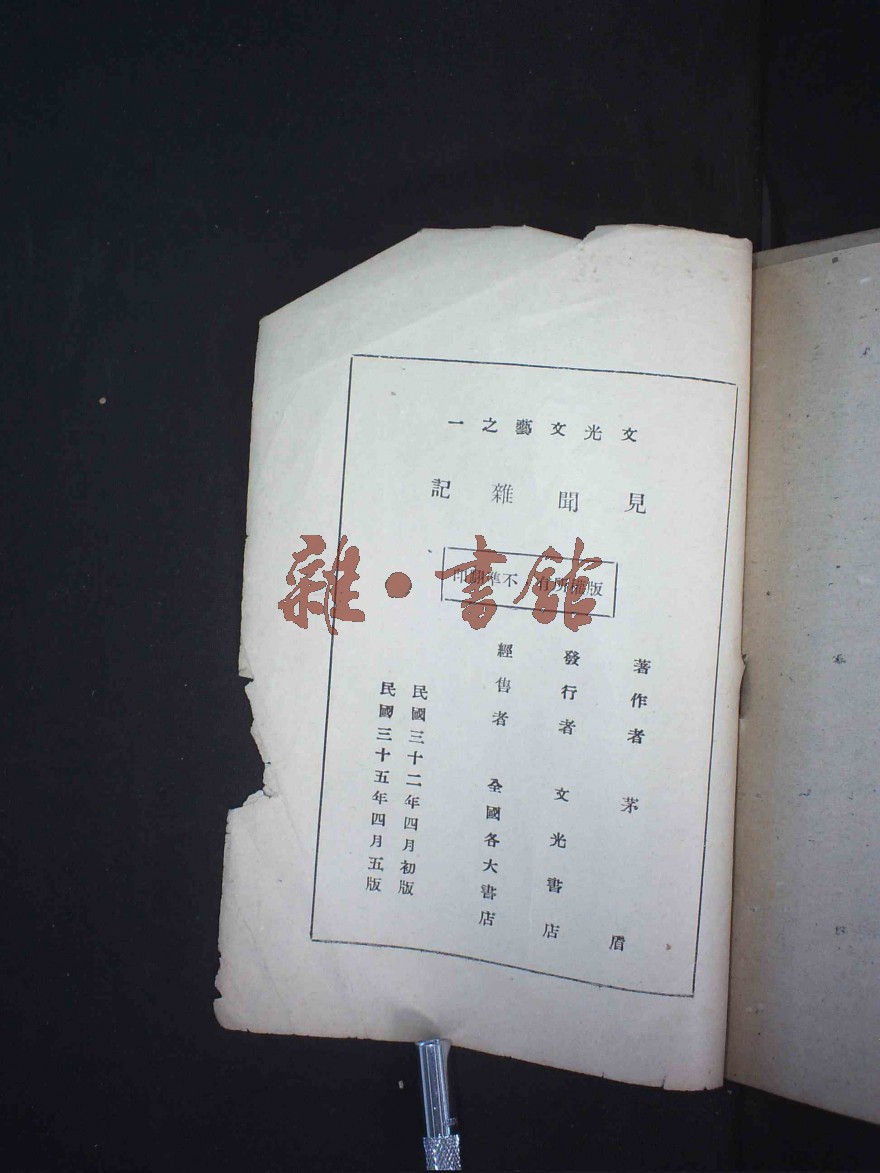 文光文藝之一
見聞雜記
版權所有 不準翻印
著作者 茅盾
發行者 文光書店
經售者 全國各大書店
民國三十二年四月初版
民國三十五年四月五版
雜·書館